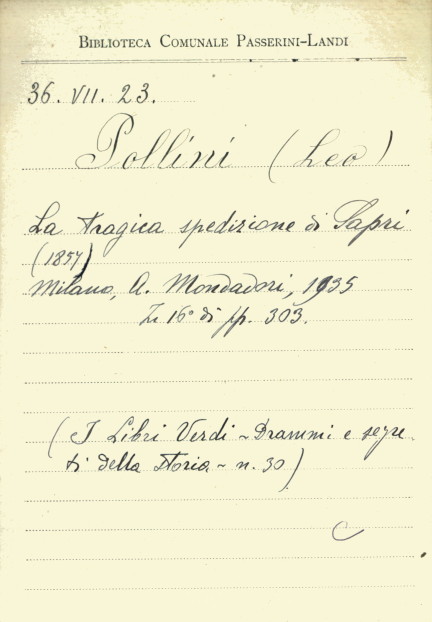 BIBLIOTECA COMUNALE PASSERINI-LANDI
36. VII. 23.
Pollini (Leo)
La tragica spedizione di Sapri
(1857)
Milano, A. Mondadori, 1935
In 16° di pp. 303.
(I Libri Verdi ~ Drammi e segre-
ti della storia ~ n. 30)
C